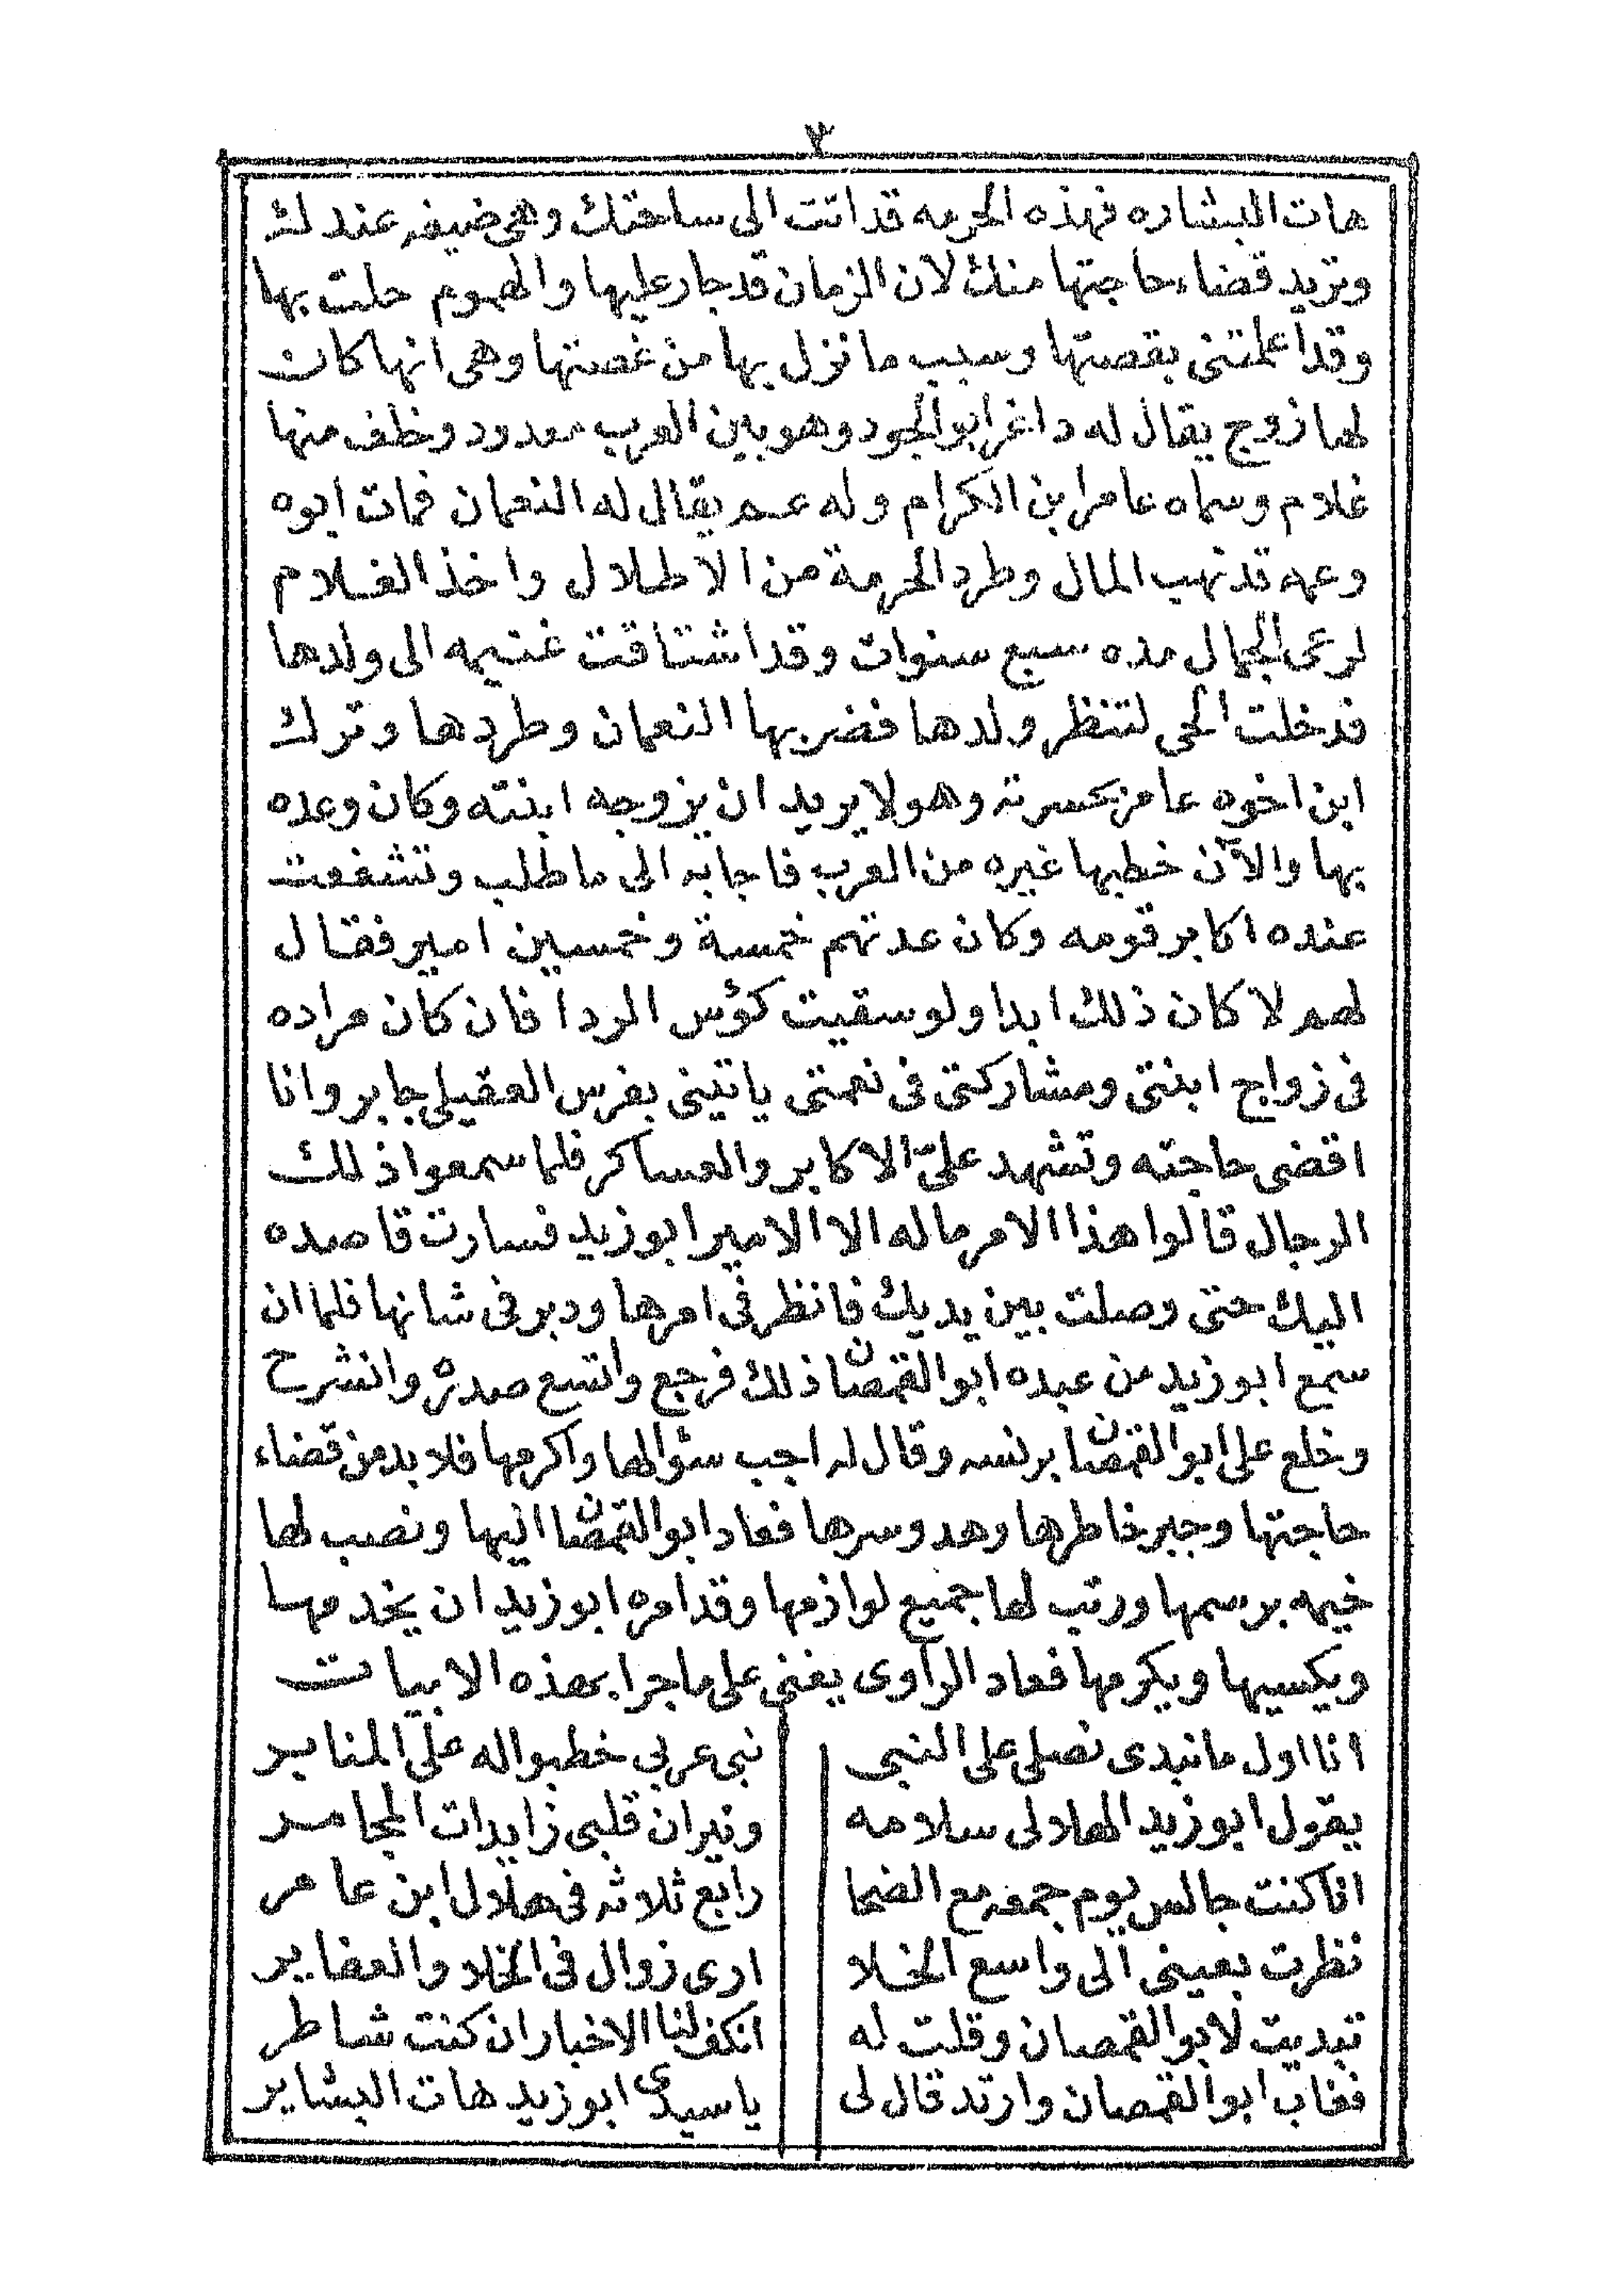 ٣
هات البشاره فهذه الحرمه قد اتت الى ساحتك وهى ضيفه عندك
وتريد قضاء حاجتها منك لان الزمان قد جار عليها والهموم حلت بها
وقد اعلمتنى بقصتها وسبب ما نزل بها من غصتها وهى انها كان
لها زوج يقال له داغر ابو الجود وهو بين العرب معدود وخلف منها
غلام وسماه عامر ابن الكرام وله عم يقال له النعمان فمات ابوه
وعمه قد نهب المال وطرد الحرمة من الاطلال واخذ الغلام
لرعى الجمال مده سبع سنوات وقد اشتاقت غنيمه الى ولدها
فدخلت الحى لتنظر ولدها فضربها النعمان وطردها وترك
ابن اخوه عامر بحسرته وهو لا يريد ان يزوجه ابنته وكان وعده
بها والآن خطبها غيره من العرب فاجابه الى ما طلب وتشفعت
عنده اكابر قومه وكان عدتهم خمسة وخمسين امير فقال
لهم لا كان ذلك ابدا ولو سقيت كؤس الردا فان كان مراده
فى زواج ابنتى ومشاركتى فى نعمتى ياتينى بفرس العقيلى جابر وانا
اقضى حاجته وتشهد علىّ الاكابر والعساكر فلما سمعوا ذلك
الرجال قالوا هذا الامر ماله الا الامير ابو زيد فسارت قاصده
اليك حتى وصلت بين يديك فانظر فى امرها ودبر فى شانها فلما ان
سمع ابو زيد من عبده ابو القمصان ذلك فرجع واتسع صدره وانشرح
وخلع على ابو القمصان برنسه وقال له اجب سؤالها واكرمها فلا بد من قضاء
حاجتها وجبر خاطرها وهدو سرها فعاد ابو القمصان اليها ونصب لها
خيمه برسمها ورتب لها جميع لوازمها وقد امره ابو زيد ان يخدمها
ويكسيها ويكرمها فعاد الراوى يغنى على ماجرا بهذه الابيات
انا اول ما نبدى نصلى على النبى نبى عربي خطبوا له على المنابر
يقول ابو زيد الهلالى سلامه ونيران قلبى زايدات المجامر
انا كنت جالس يوم جمعه مع الضحا رابع ثلاثه فى هلال ابن عامر
نظرت بعينى الى واسع الخلا ارى زوال فى الخلا والعفاير
تبديت لابو القمصان وقلت له انكف لنا الاخبار ان كنت شاطر
فغاب ابو القمصان وارتد قال لى يا سيدى ابو زيد هات البشاير